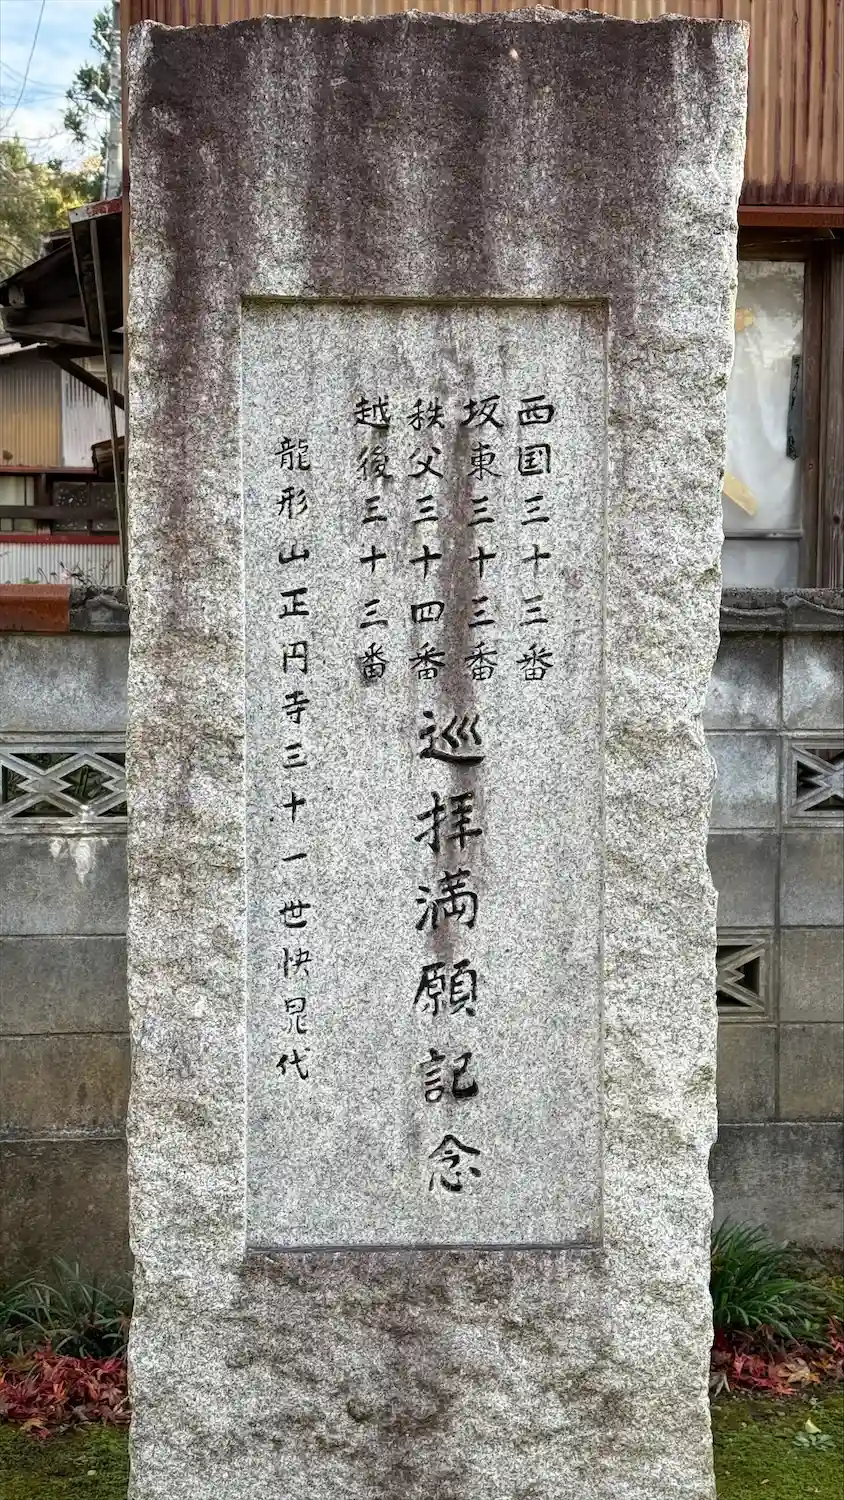 西国三十三番
坂東三十三番
秩父三十四番
越後三十三番
巡拝満願記念
龍形山正円寺三十一世快晃代